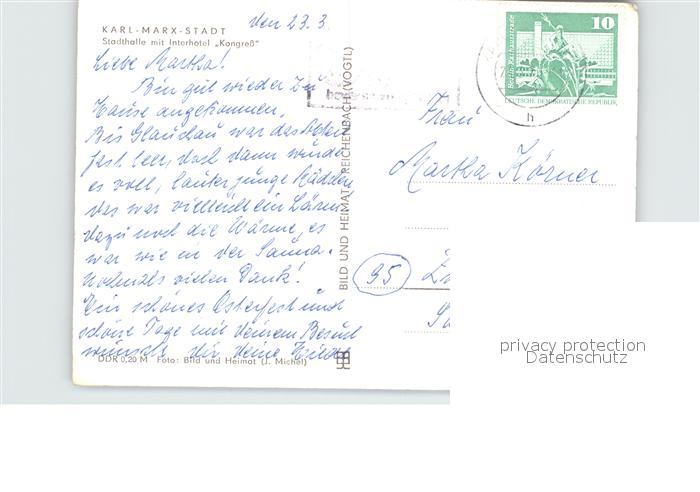 KARL-MARX-STADT
Stadthalle mit Interhotel „Kongreß"
Den 23.3.
Liebe Martha!
Bin gut wieder zu
Hause angekommen.
Bis Glauchau war das Abteil
fast leer, doch dann wurde
es voll, lauter junge Mädchen
das war vielleicht ein Lärm
dazu noch die Wärme, es
war wie in der Sauna.
Nochmals vielen Dank!
Ein schönes Osterfest und
schöne Tage mit deinem Besuch
wünscht dir deine
DDR 0,20 M Foto: Bild und Heimat (J. Michel)
BILD UND HEIMAT REICHENBACH (VOGTL)
10
Berlin-Rathausstraße
DEUTSCHE DEMOKRATISCHE REPUBLIK
h
Frau
Martha Körner
95
privacy protection
Datenschutz